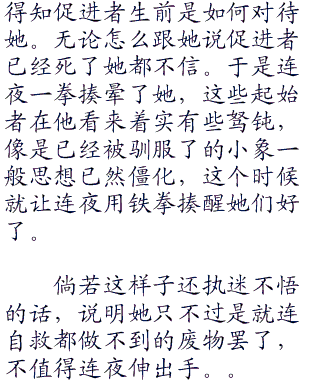 得知促进者生前是如何对待
她。无论怎么跟她说促进者
已经死了她都不信。于是连
夜一拳揍晕了她，这些起始
者在他看来着实有些驽钝，
像是已经被驯服了的小象一
般思想已然僵化，这个时候
就让连夜用铁拳揍醒她们好
了。
倘若这样子还执迷不悟
的话，说明她只不过是就连
自救都做不到的废物罢了，
不值得连夜伸出手。。